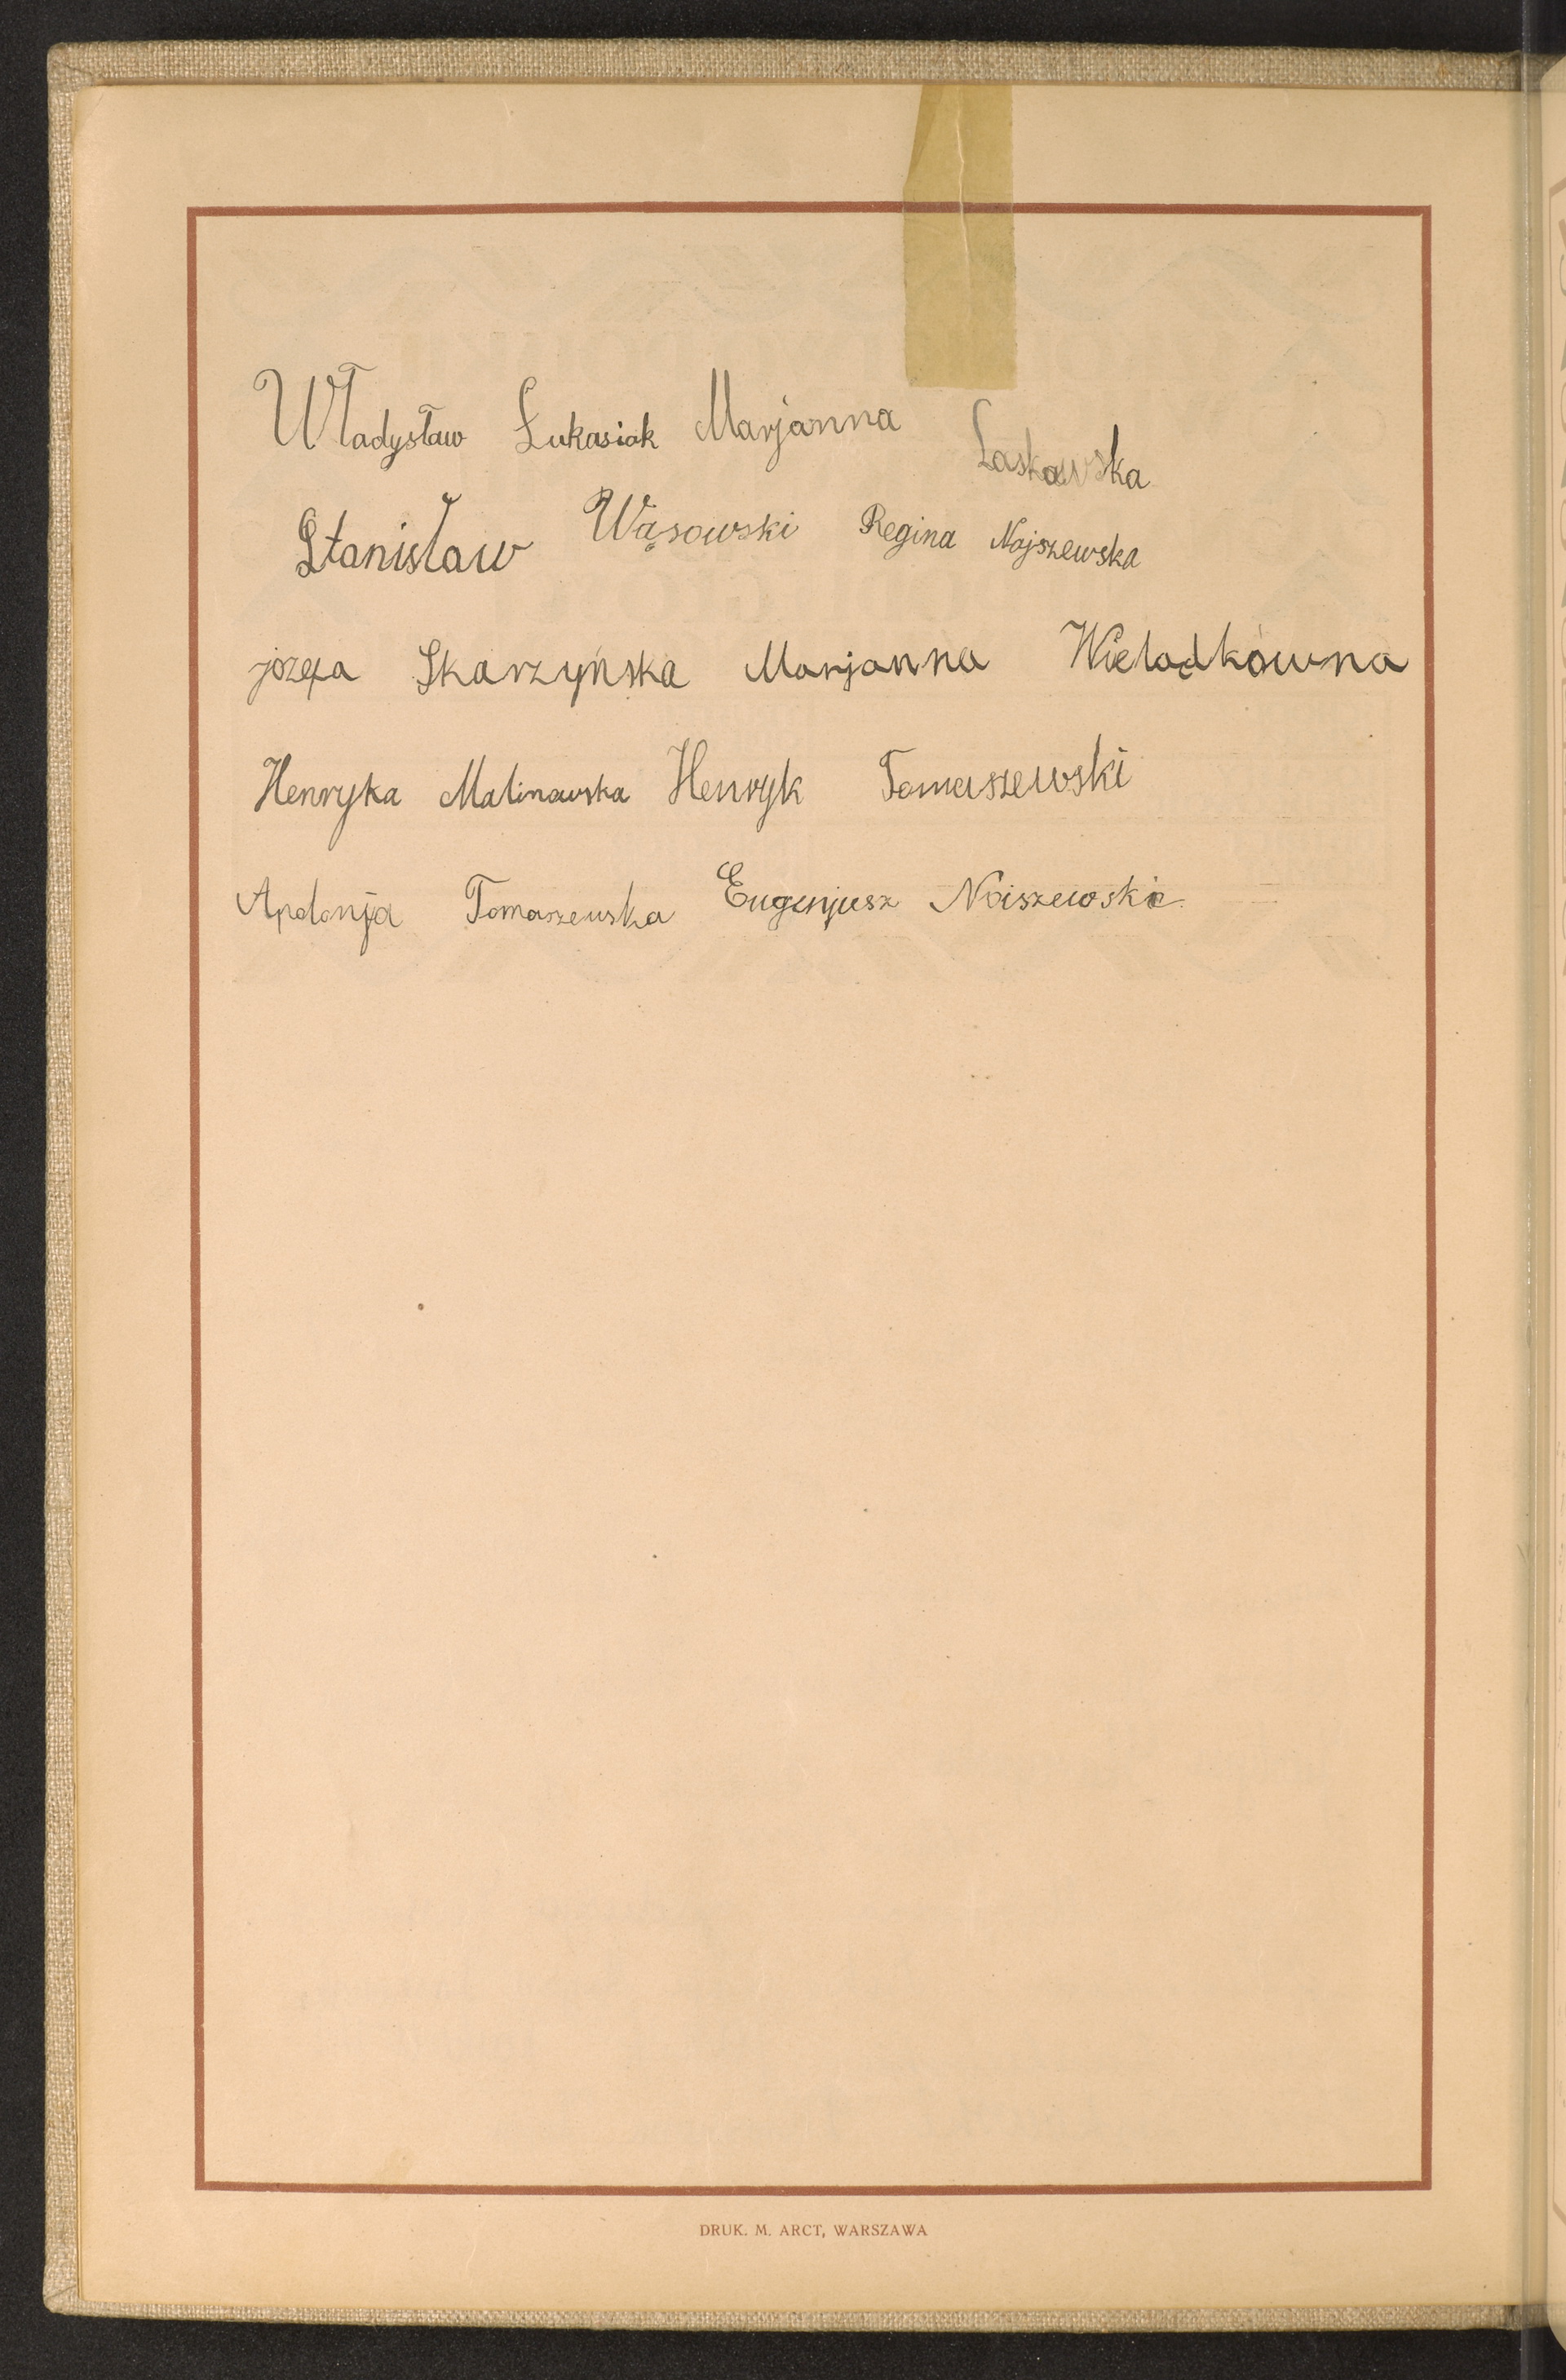 Władysław Łukasiak Marjanna Laskowska
Stanisław Wąsowski Regina Nojszewska
józefa Skarzyńska Marjanna Wielądkówna
Henryka Malinowska Henryk Tomaszewski
Apolonja Tomaszewska Eugenjusz Noiszewski
DRUK. M. ARCT, WARSZAWA